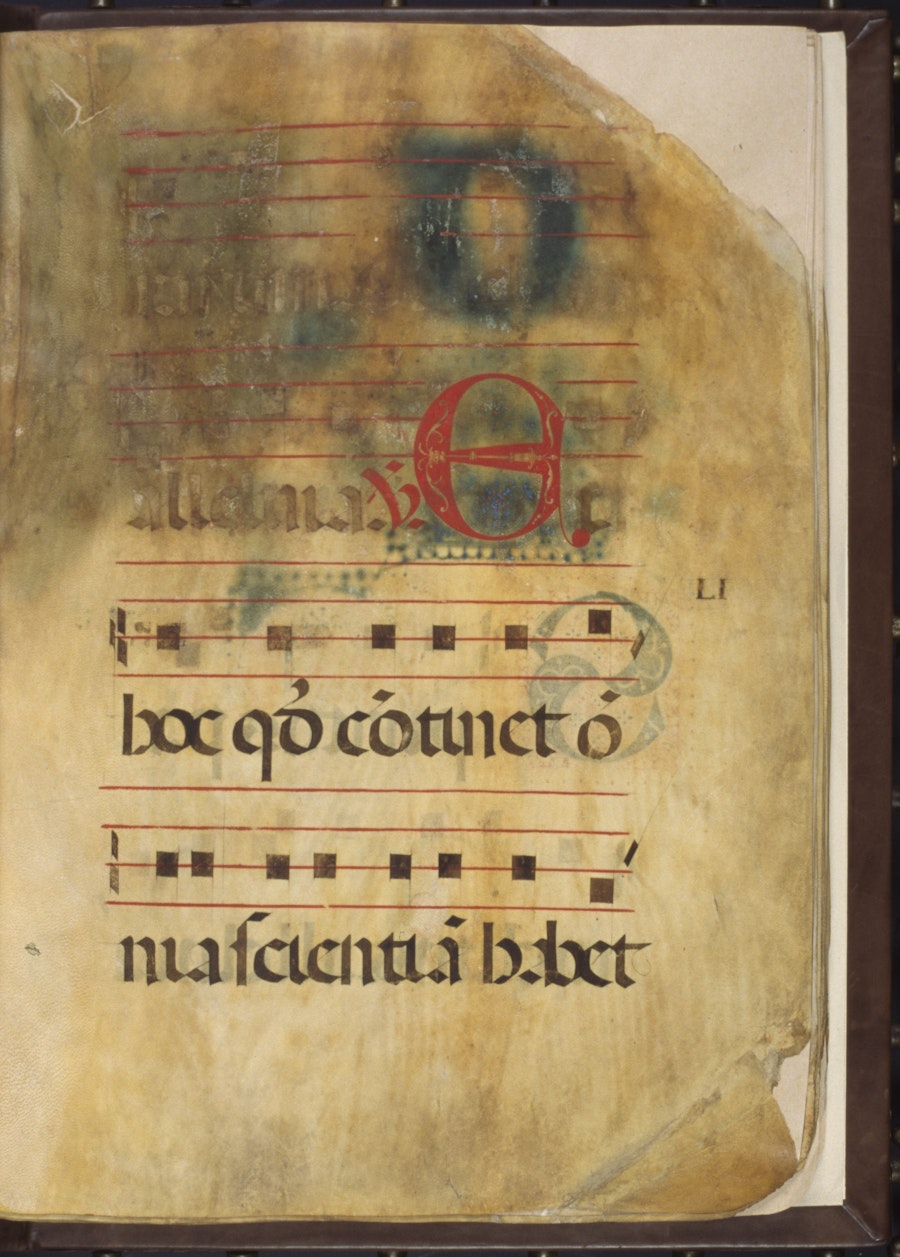 alleluia. ℣. Et
LI
hoc qđ cōtinet ō
nia scientiā habet